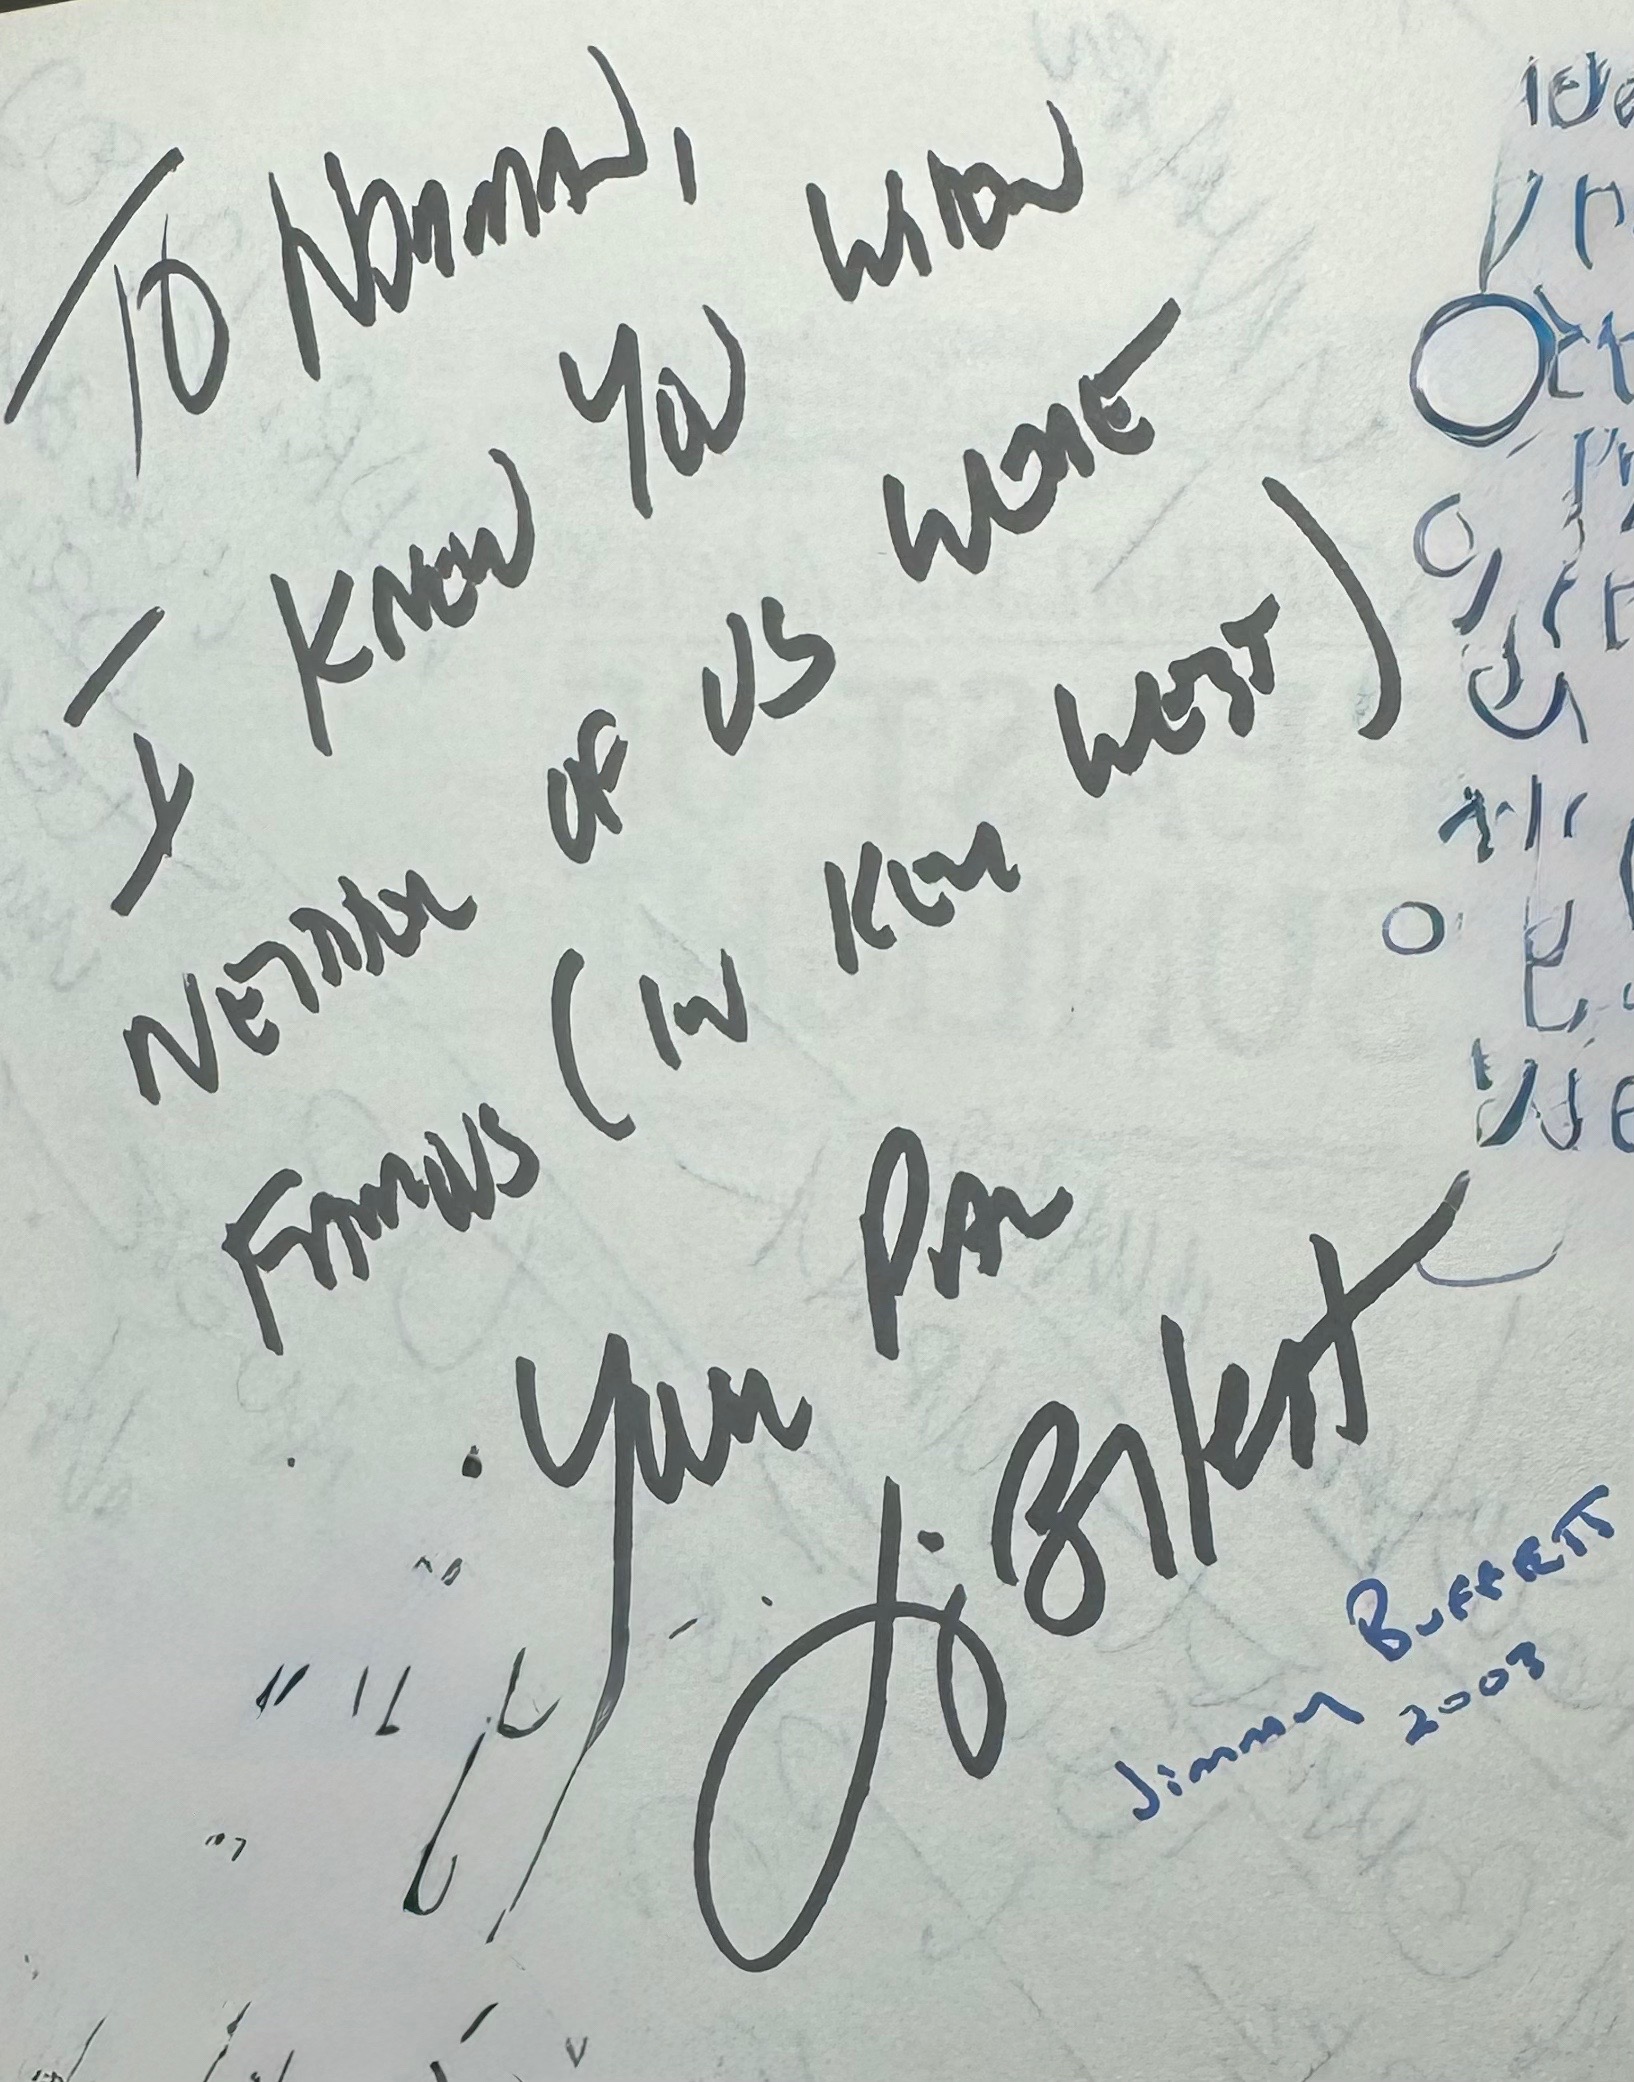 To Norman,
I knew you when
neither of us were
famous (in Key West)
Your Pal
J. Buffett
Jimmy Buffett
2003